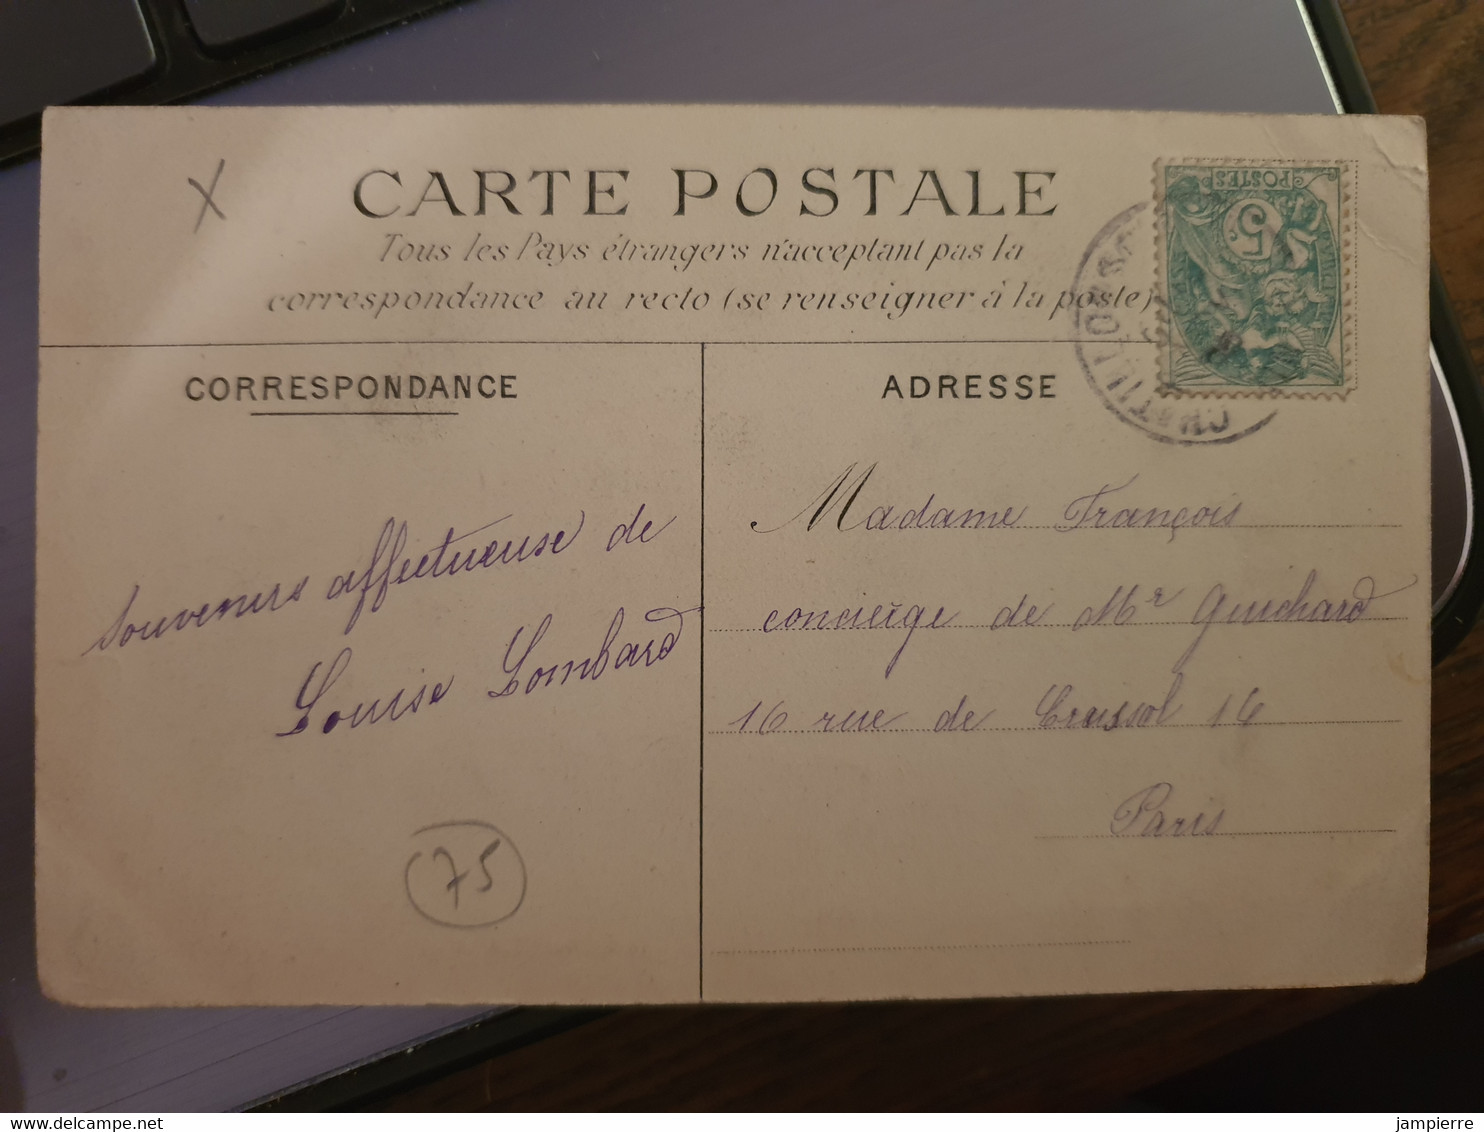 X
CARTE POSTALE
Tous les Pays étrangers n'acceptant pas la
correspondance au recto (se renseigner à la poste)
POSTES
5
CORRESPONDANCE
souvenirs affectueuse de
Louise Lombard
75
ADRESSE
Madame François
concierge de Mr Guichard
16 rue de Crussol 16
Paris
www.delcampe.net
jampierre